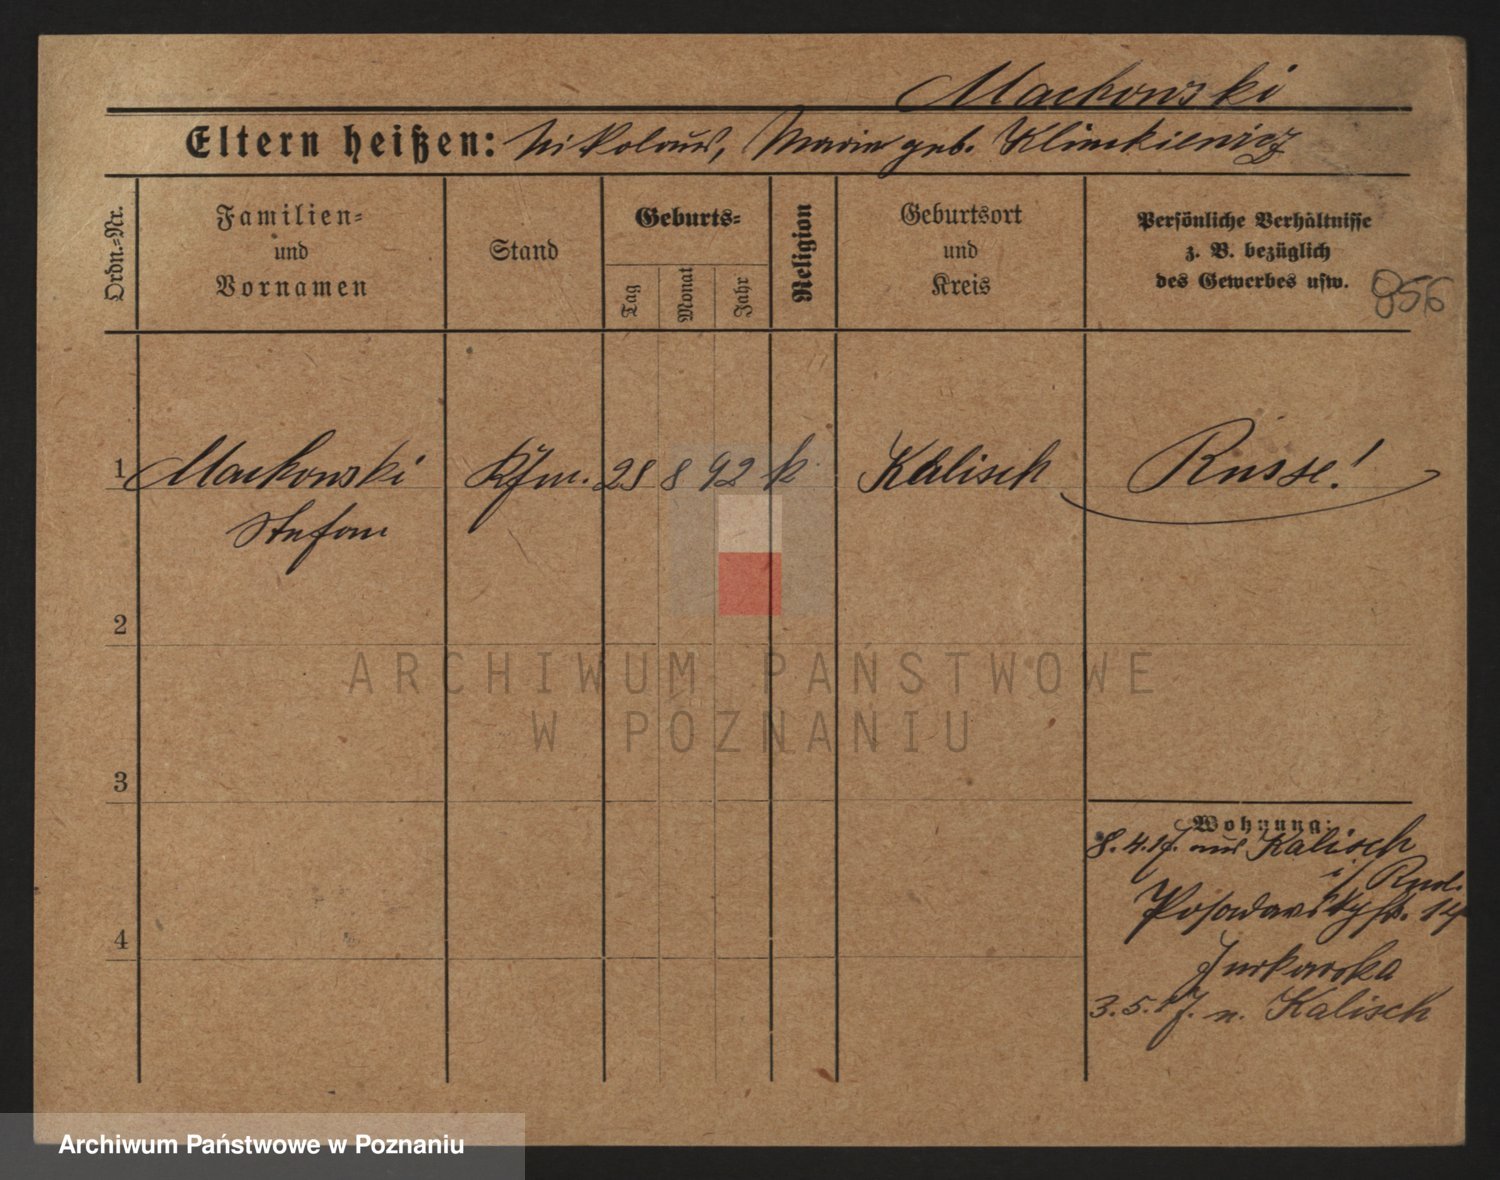 Mackowski
Eltern heißen: Nikolaus, Marie geb. Klimkiewicz
Ordn.=Nr.
Familien=
und
Vornamen
Stand
Geburts=
Tag
Monat
Jahr
Religion
Geburtsort
und
Kreis
Persönliche Verhältnisse
z. B. bezüglich
des Gewerbes usw.
856
1 Mackowski Kfm. 28 8 92 k. Kalisch Russe!
Stefan
2
ARCHIWUM PAŃSTWOWE
W POZNANIU
3
Wohnung:
8.4.17. aus Kalisch
i/ Russl.
Posadowskystr. 14
4
Jurkowska
3.5.17. n. Kalisch
Archiwum Państwowe w Poznaniu